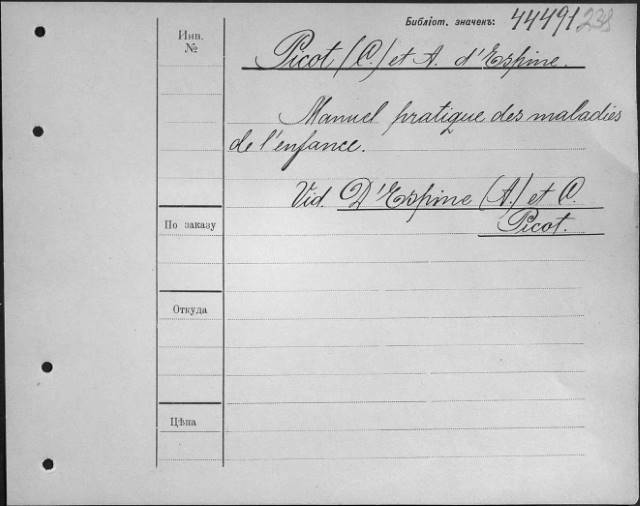 Библіот. значекъ: 44491 238
Инв.
№
Picot (C.) et A. d'Espine.
Manuel pratique des maladies
de l'enfance.
Vid. D'Espine (A.) et C.
Picot.
По заказу
Откуда
Цѣна